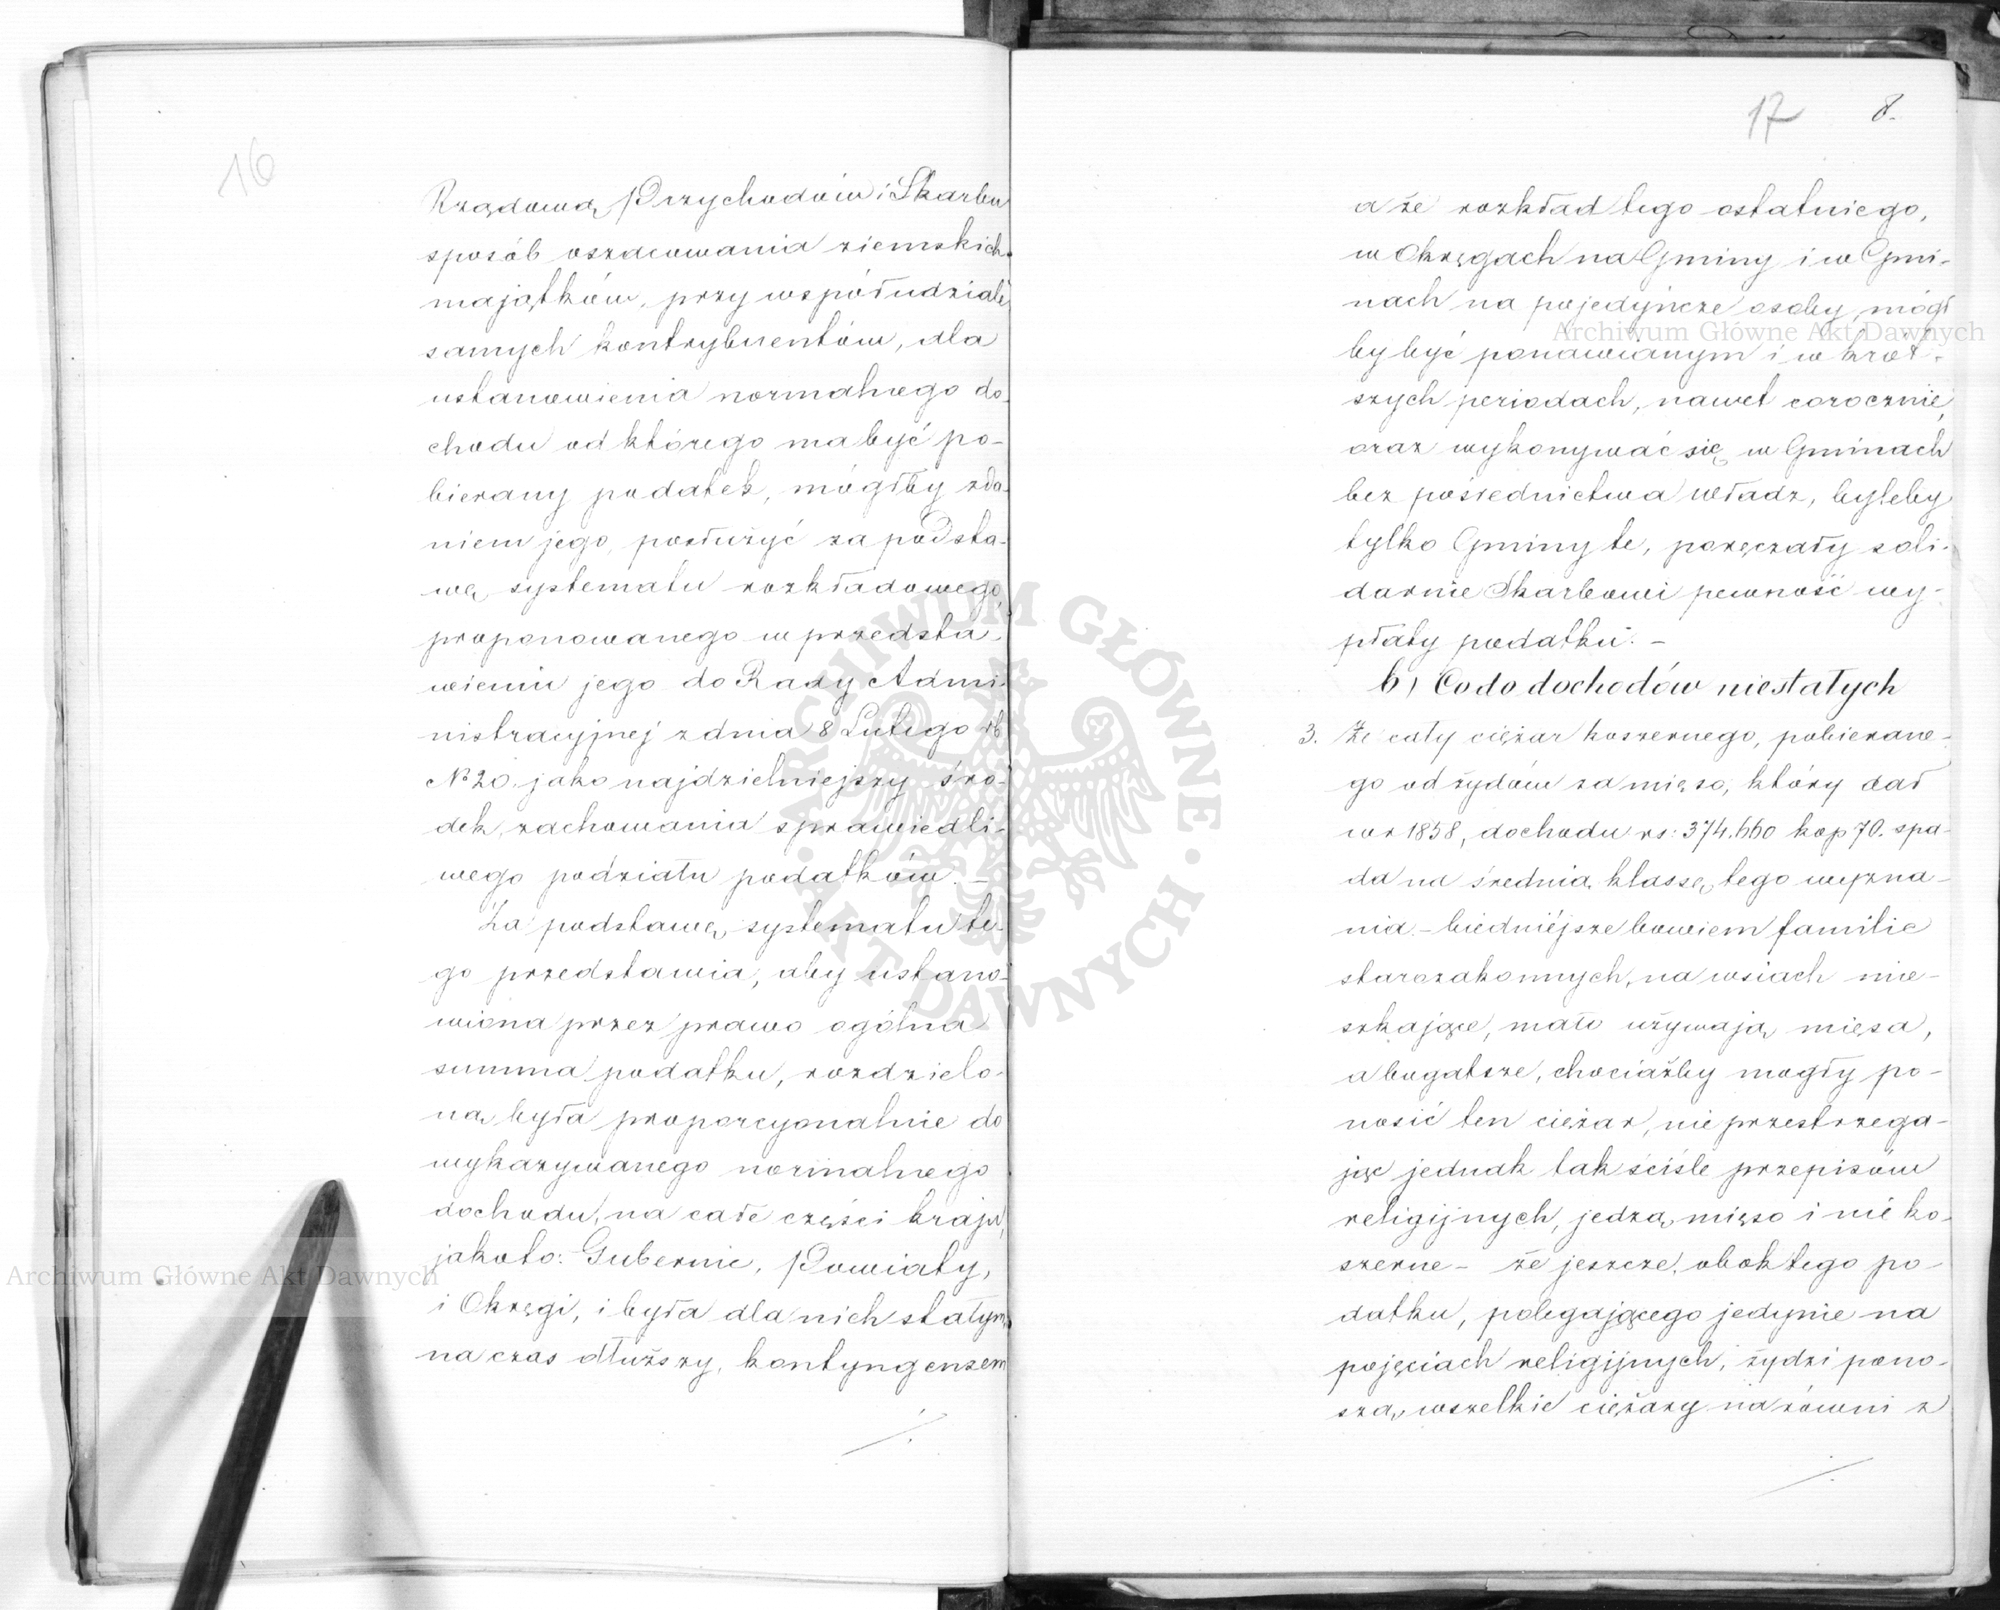 16
Rządową Przychodów i Skarbu
sposób oszacowania ziemskich
majątków, przy współudziale
samych kontrybuentów, dla
ustanowienia normalnego do-
chodu od którego ma być po-
bierany podatek, mógłby zda-
niem jego, posłużyć za podsta-
wę systematu rozkładowego,
proponowanego w przedsta-
wieniu jego do Rady Admi-
nistracyjnej z dnia 8 Lutego rb
№ 20. jako najdzielniejszy śro-
dek, zachowania sprawiedli-
wego podziału podatków. —
Za podstawę systematu te-
go przedstawia, aby ustano-
wiona przez prawo ogólna
summa podatku, rozdzielo-
ną była proporcyonalnie do
wykazywanego normalnego
dochodu, na całe części kraju,
jakoto: Gubernie, Powiaty,
i Okręgi, i była dla nich stałym,
na czas dłuższy, kontyngensem
./.
17 8.
a że rozkład tego ostatniego,
w Okręgach na Gminy i w Gmi-
nach na pojedyńcze osoby, mógł
by być ponawianym i w krót-
szych periodach, nawet corocznie,
oraz wykonywać się w Gminach
bez pośrednictwa władz, byleby
tylko Gminy te, poręczały soli-
darnie Skarbowi pewność wy-
płaty podatku. —
b) Co do dochodów niestałych
3. Że cały ciężar koszernego, pobierane-
go od żydów za mięso, który dał
w r 1858, dochodu rs: 374.660 kop 70. spa-
da na średnią klassę tego wyzna-
nia. – biedniéjsze bowiem familie
starozakonnych, na wsiach mie-
szkające, mało używają mięsa,
a bogatsze, chociażby mogły po-
nosić ten ciężar, nie przestrzega-
jąc jednak tak ściśle przepisów
religijnych, jedzą mięso i nie ko-
szerne – że jeszcze, obok tego po-
datku, polegającego jedynie na
pojęciach religijnych, żydzi pono-
szą, wszelkie ciężary na równi z
./.
Archiwum Główne Akt Dawnych
Archiwum Główne Akt Dawnych
ARCHIWUM GŁÓWNE
AKT DAWNYCH